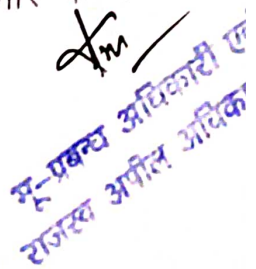 भू-प्रबन्ध अधिकारी ए
राजस्व अपील अधिक